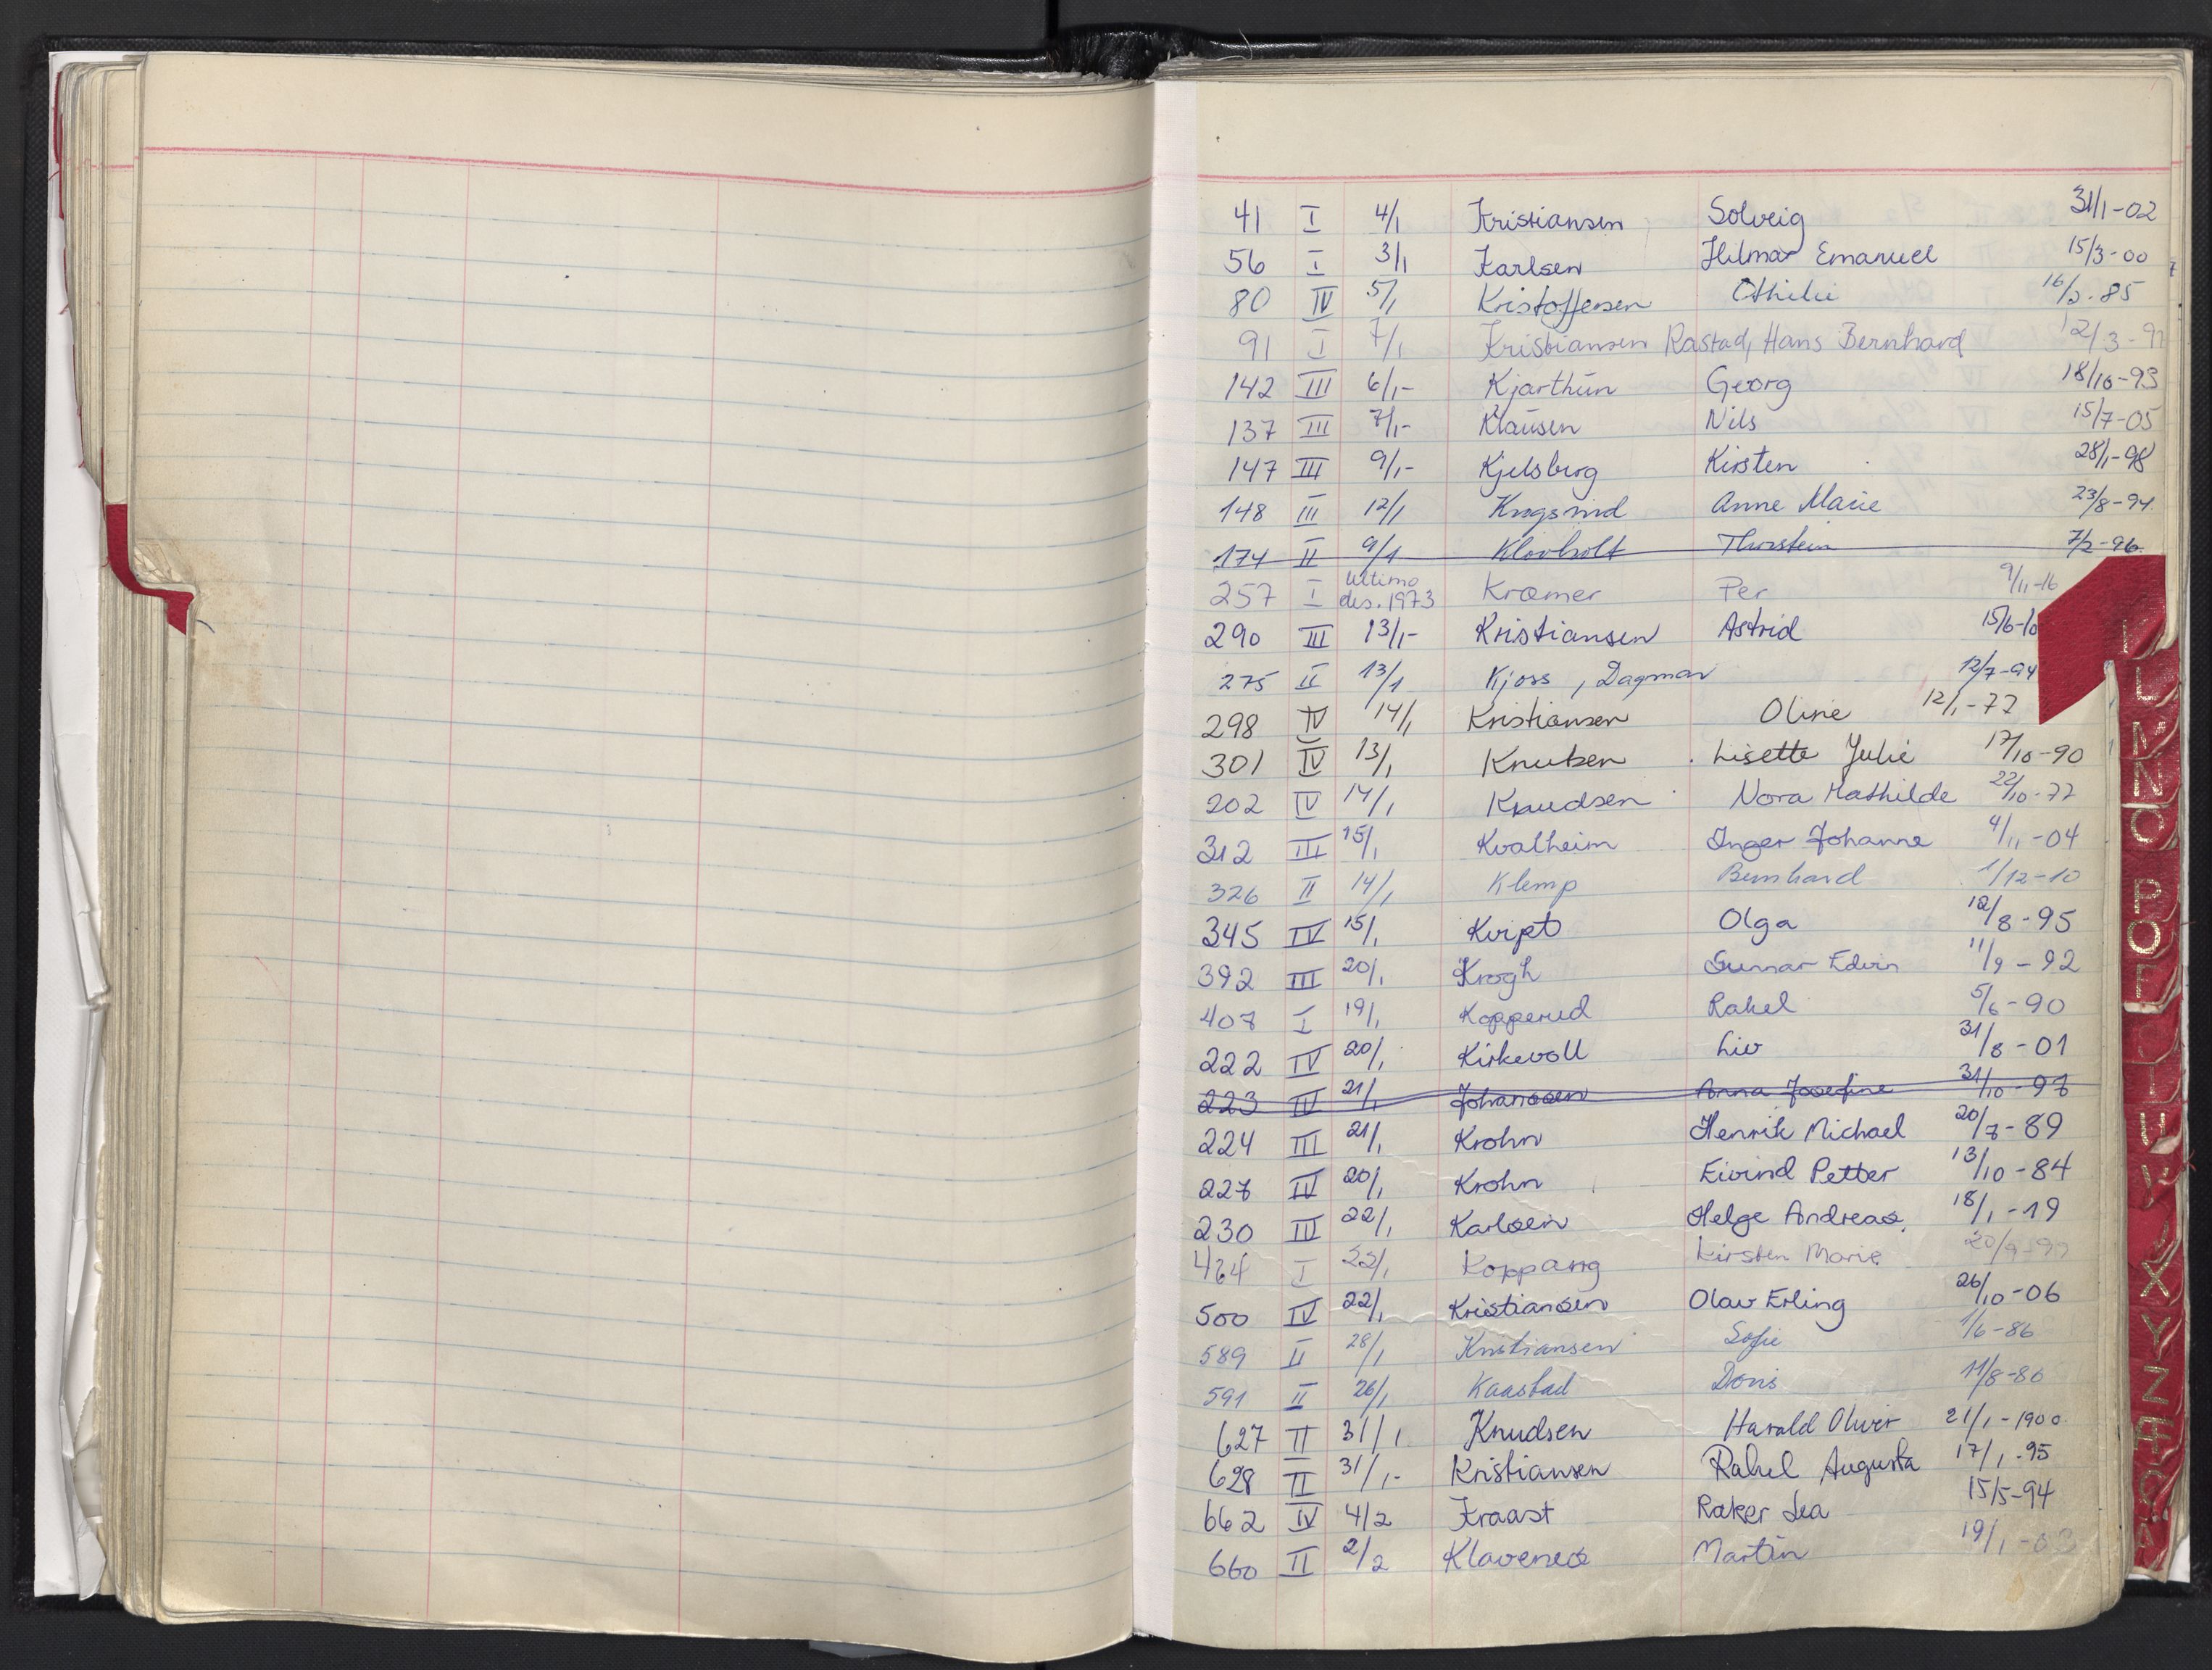 41 I 4/1 Kristiansen Solveig 31/1-02
56 I 3/1 Karlsen Hilmar Emanuel 15/3-00
80 IV 5/1 Kristoffersen Othilie 16/2-85
91 I 7/1 Kristiansen Rastad, Hans Bernhard 12/3-9
142 III 6/1- Kjarthún Georg 18/10-93
137 III 7/1- Klaúsen Nils 15/7-05
147 III 9/1- Kjelsberg Kirsten 28/1-98
148 III 12/1 Anne Marie 23/8-94
174 II 9/1 Klovholt Thorstein 7/2-96
257 I Ultimo des. 1973 Kræmer Per 9/11-16
290 III 13/1- Kristiansen Astrid 15/6-10
275 II 13/1 Kjoss, Dagmar 12/7-94
298 IV 14/1 Kristiansen Oline 12/1-77
301 IV 13/1 Knutsen Lisette Julie 17/10-90
202 IV 14/1 Knudsen Nora Mathilde 22/10-77
312 III 15/1 Kvalheim Inger Johanne 4/11-04
326 II 14/1 Klemp Bernhard 1/12-10
345 IV 15/1 Olga 12/8-95
392 III 20/1 Krogh Gunnar Edvin 11/9-92
407 I 19/1 Kopperud Rakel 5/6-90
222 IV 20/1 Kirkevoll Liv 31/8-01
223 IV 21/1 Johanssen Anna Josefine 31/10-97
224 III 21/1 Krohn Henrik Michael 20/7-89
227 IV 20/1 Krohn Eivind Petter 13/10-84
230 III 22/1 Karlsen Helge Andreas. 18/1-19
464 I 22/1 Koppang Kirsten Marie 20/9-99
500 IV 22/1 Kristiansen Olav Erling 26/10-06
589 II 28/1 Kristiansen Sofie 1/6-86
591 II 26/1 Kaastad Doris 11/8-86
627 II 31/1 Knudsen Harald Oliver 21/1-1900
628 II 31/1- Kristiansen Rakel Augusta 17/1-95
662 IV 4/2 Kraast Lea 15/5-94
660 II 2/2 Klavenes Martin 19/1-03
L
M
N
O
P
Q
R
S
T
U
V
X
Y
Z
Æ
Ø